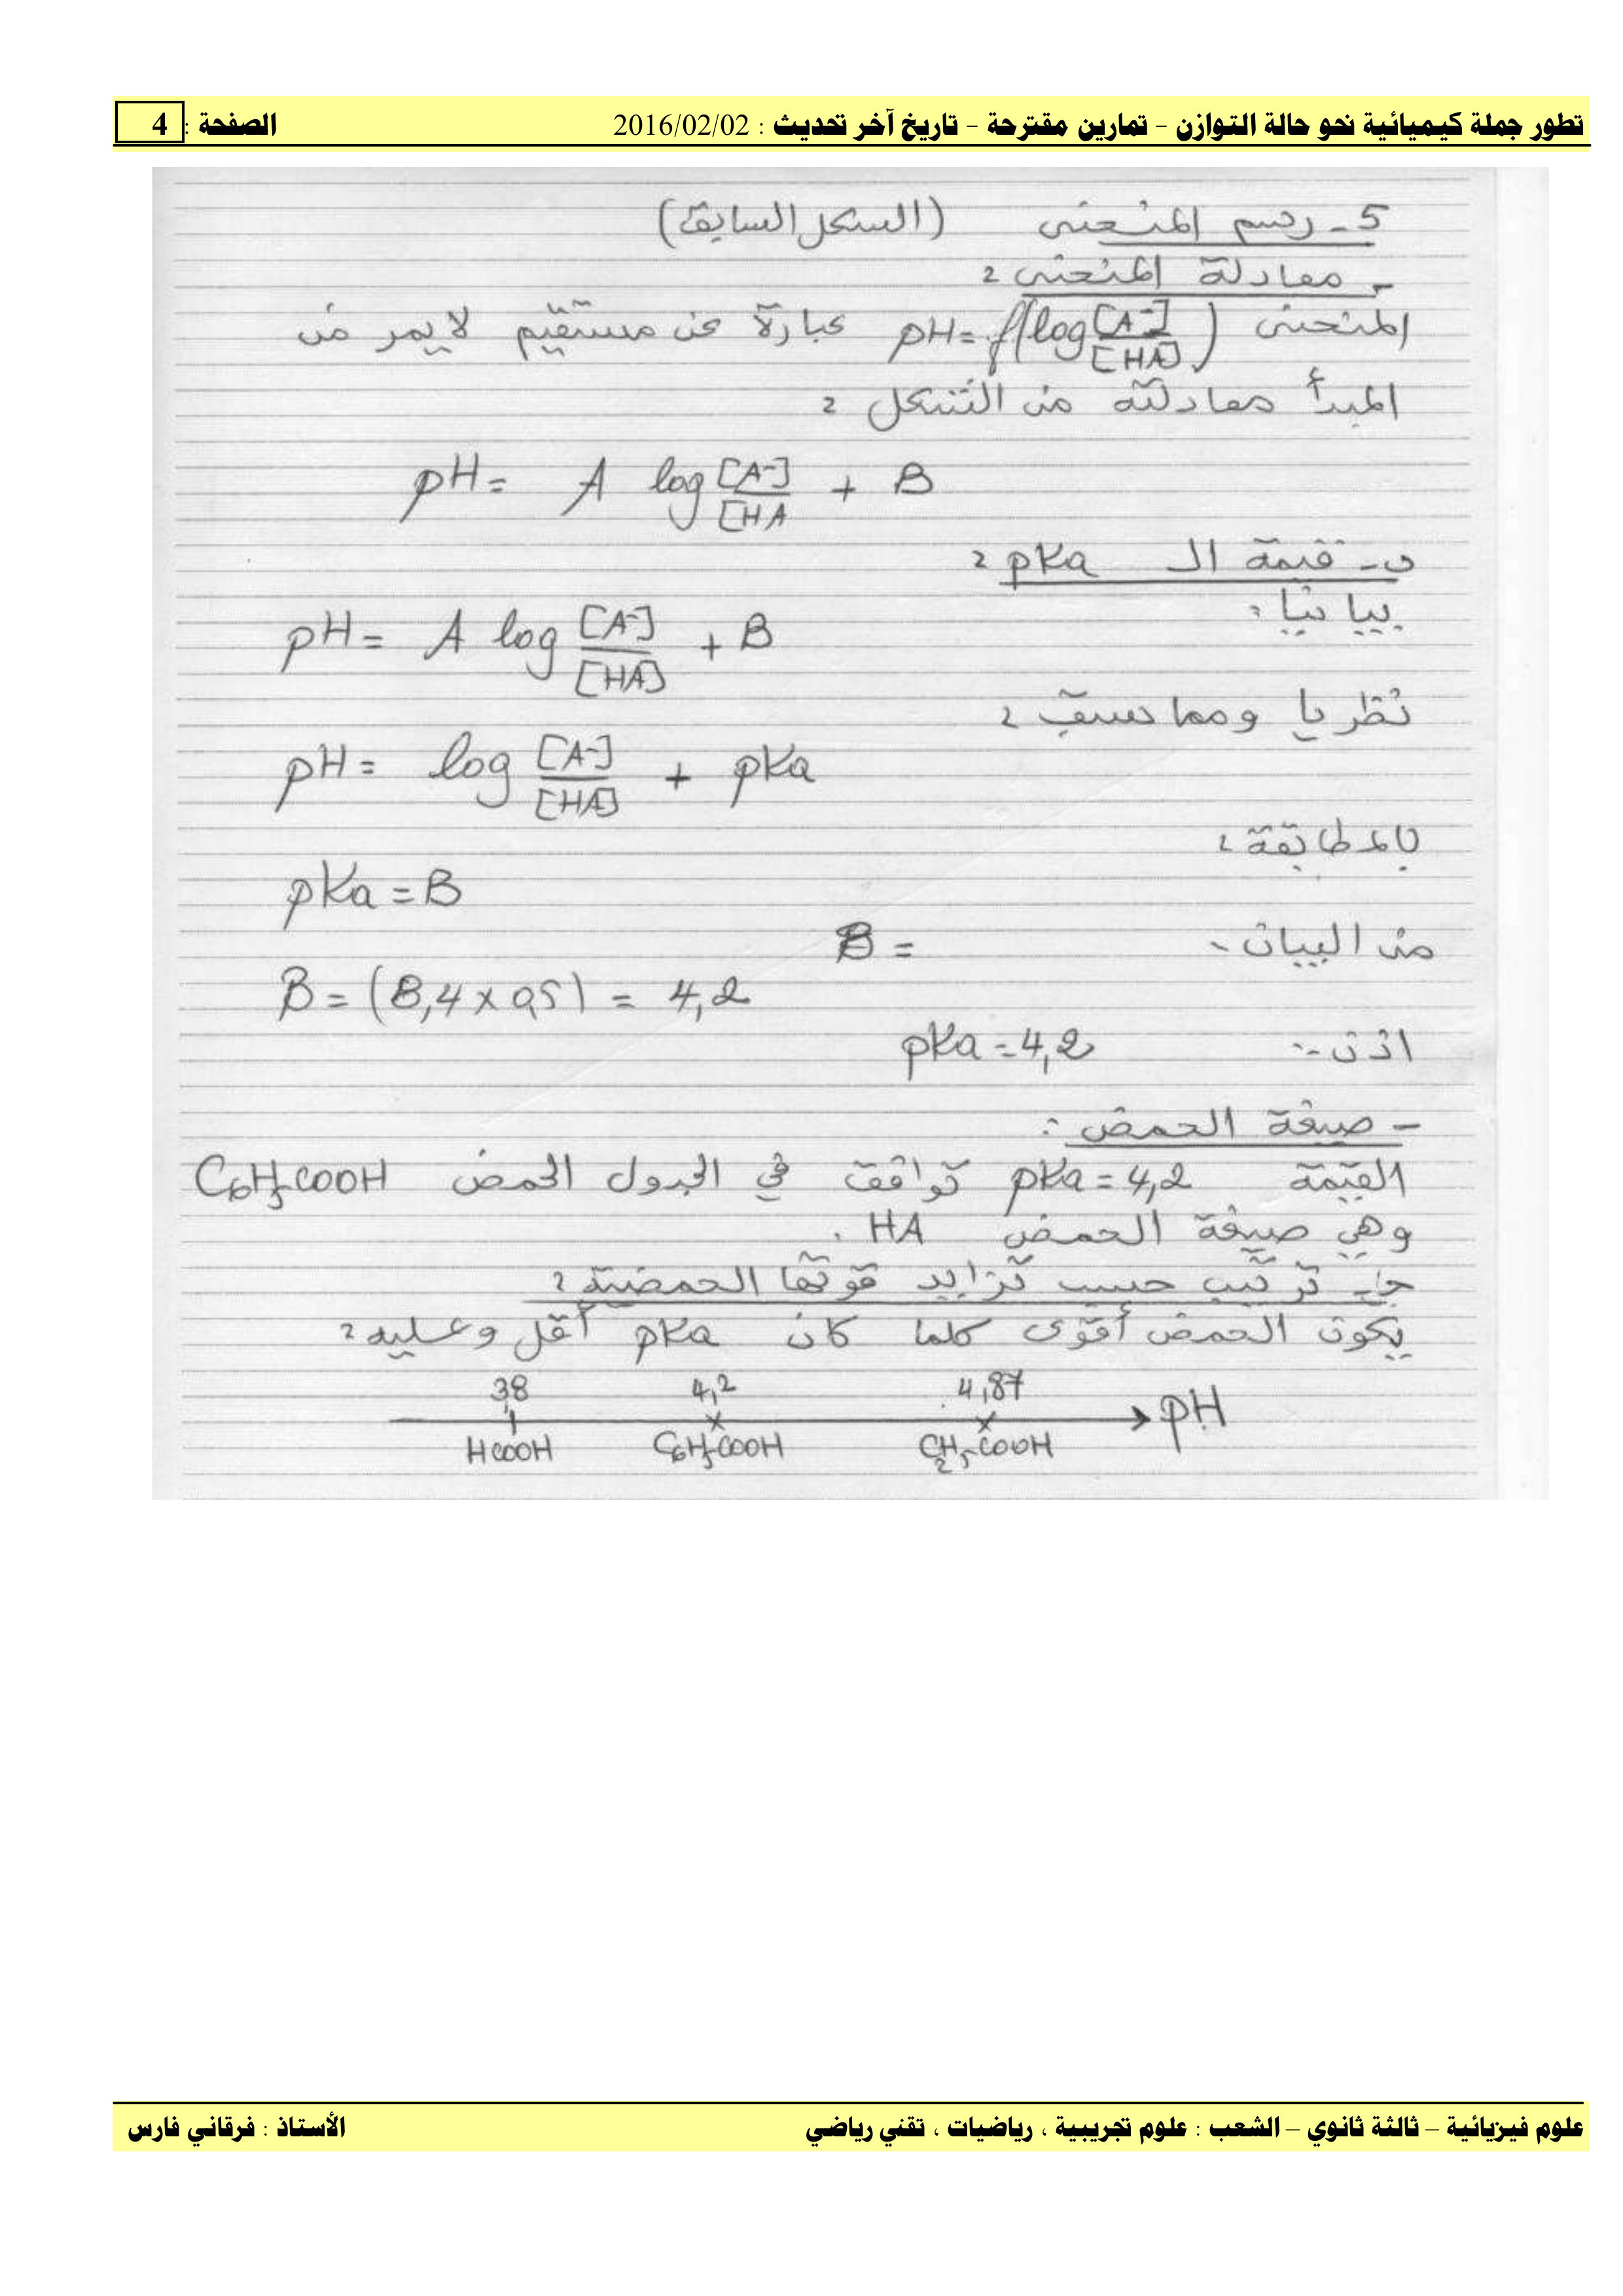 تطور جملة كيميائية نحو حالة التوازن – تمارين مقترحة – تاريخ آخر تحديث : 2016/02/02 الصفحة : 4
5 - رسم المنحنى (الشكل السابق)
- معادلة المنحنى :
المنحنى pH = f(log [A-]/[HA]) عبارة عن مستقيم لا يمر من
المبدأ معادلته من الشكل :
pH = A log [A-]/[HA + B
ب- قيمة الـ pKa :
بيانيا :
pH = A log [A-]/[HA] + B
نظريا ومما سبق :
pH = log [A-]/[HA] + pKa
بالمطابقة :
pKa = B
من البيان : B =
B = (8,4 x 0,5) = 4,2
اذن : pKa = 4,2
- صيغة الحمض :
القيمة pKa = 4,2 توافق في الجدول الحمض C6H5COOH
وهي صيغة الحمض HA .
جـ- ترتيب حسب تزايد قوتها الحمضية :
يكون الحمض أقوى كلما كان pKa أقل وعليه :
3,8 4,2 4,87
pH
HCOOH C6H5-COOH C2H5-COOH
علوم فيزيائية – ثالثة ثانوي – الشعب : علوم تجريبية ، رياضيات ، تقني رياضي الأستاذ : فرقاني فارس